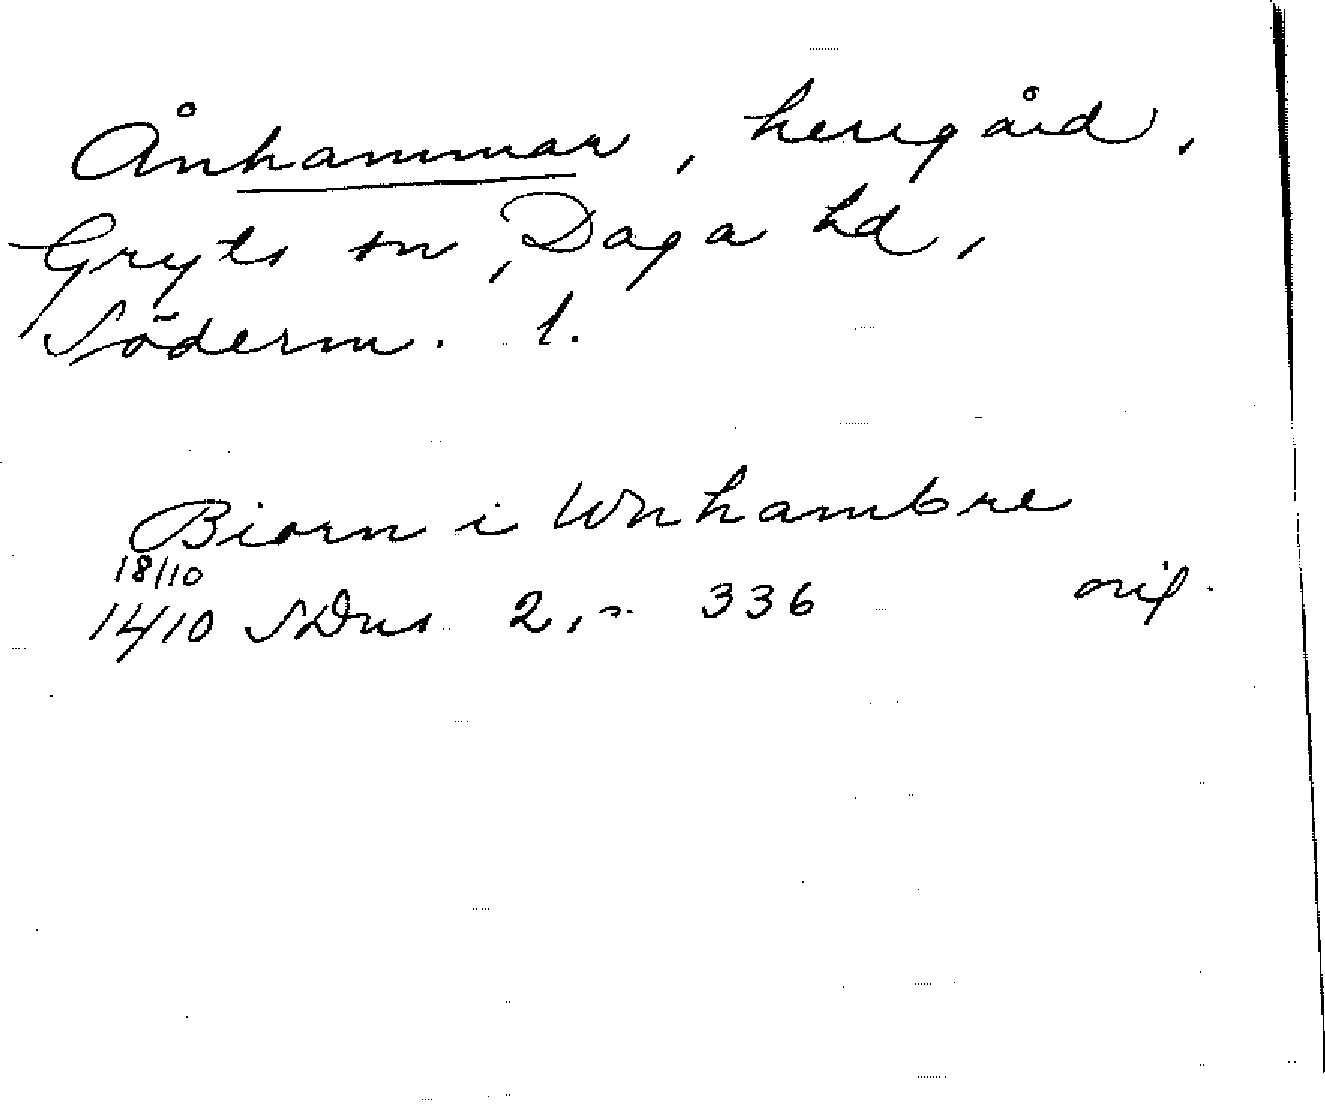 Ånhammar, herrgård,
Gryts sn, Daga hd,
Söderm. l.
Biorn i Wnhambre
18/10
14/10 SDns 2, 336 orig.